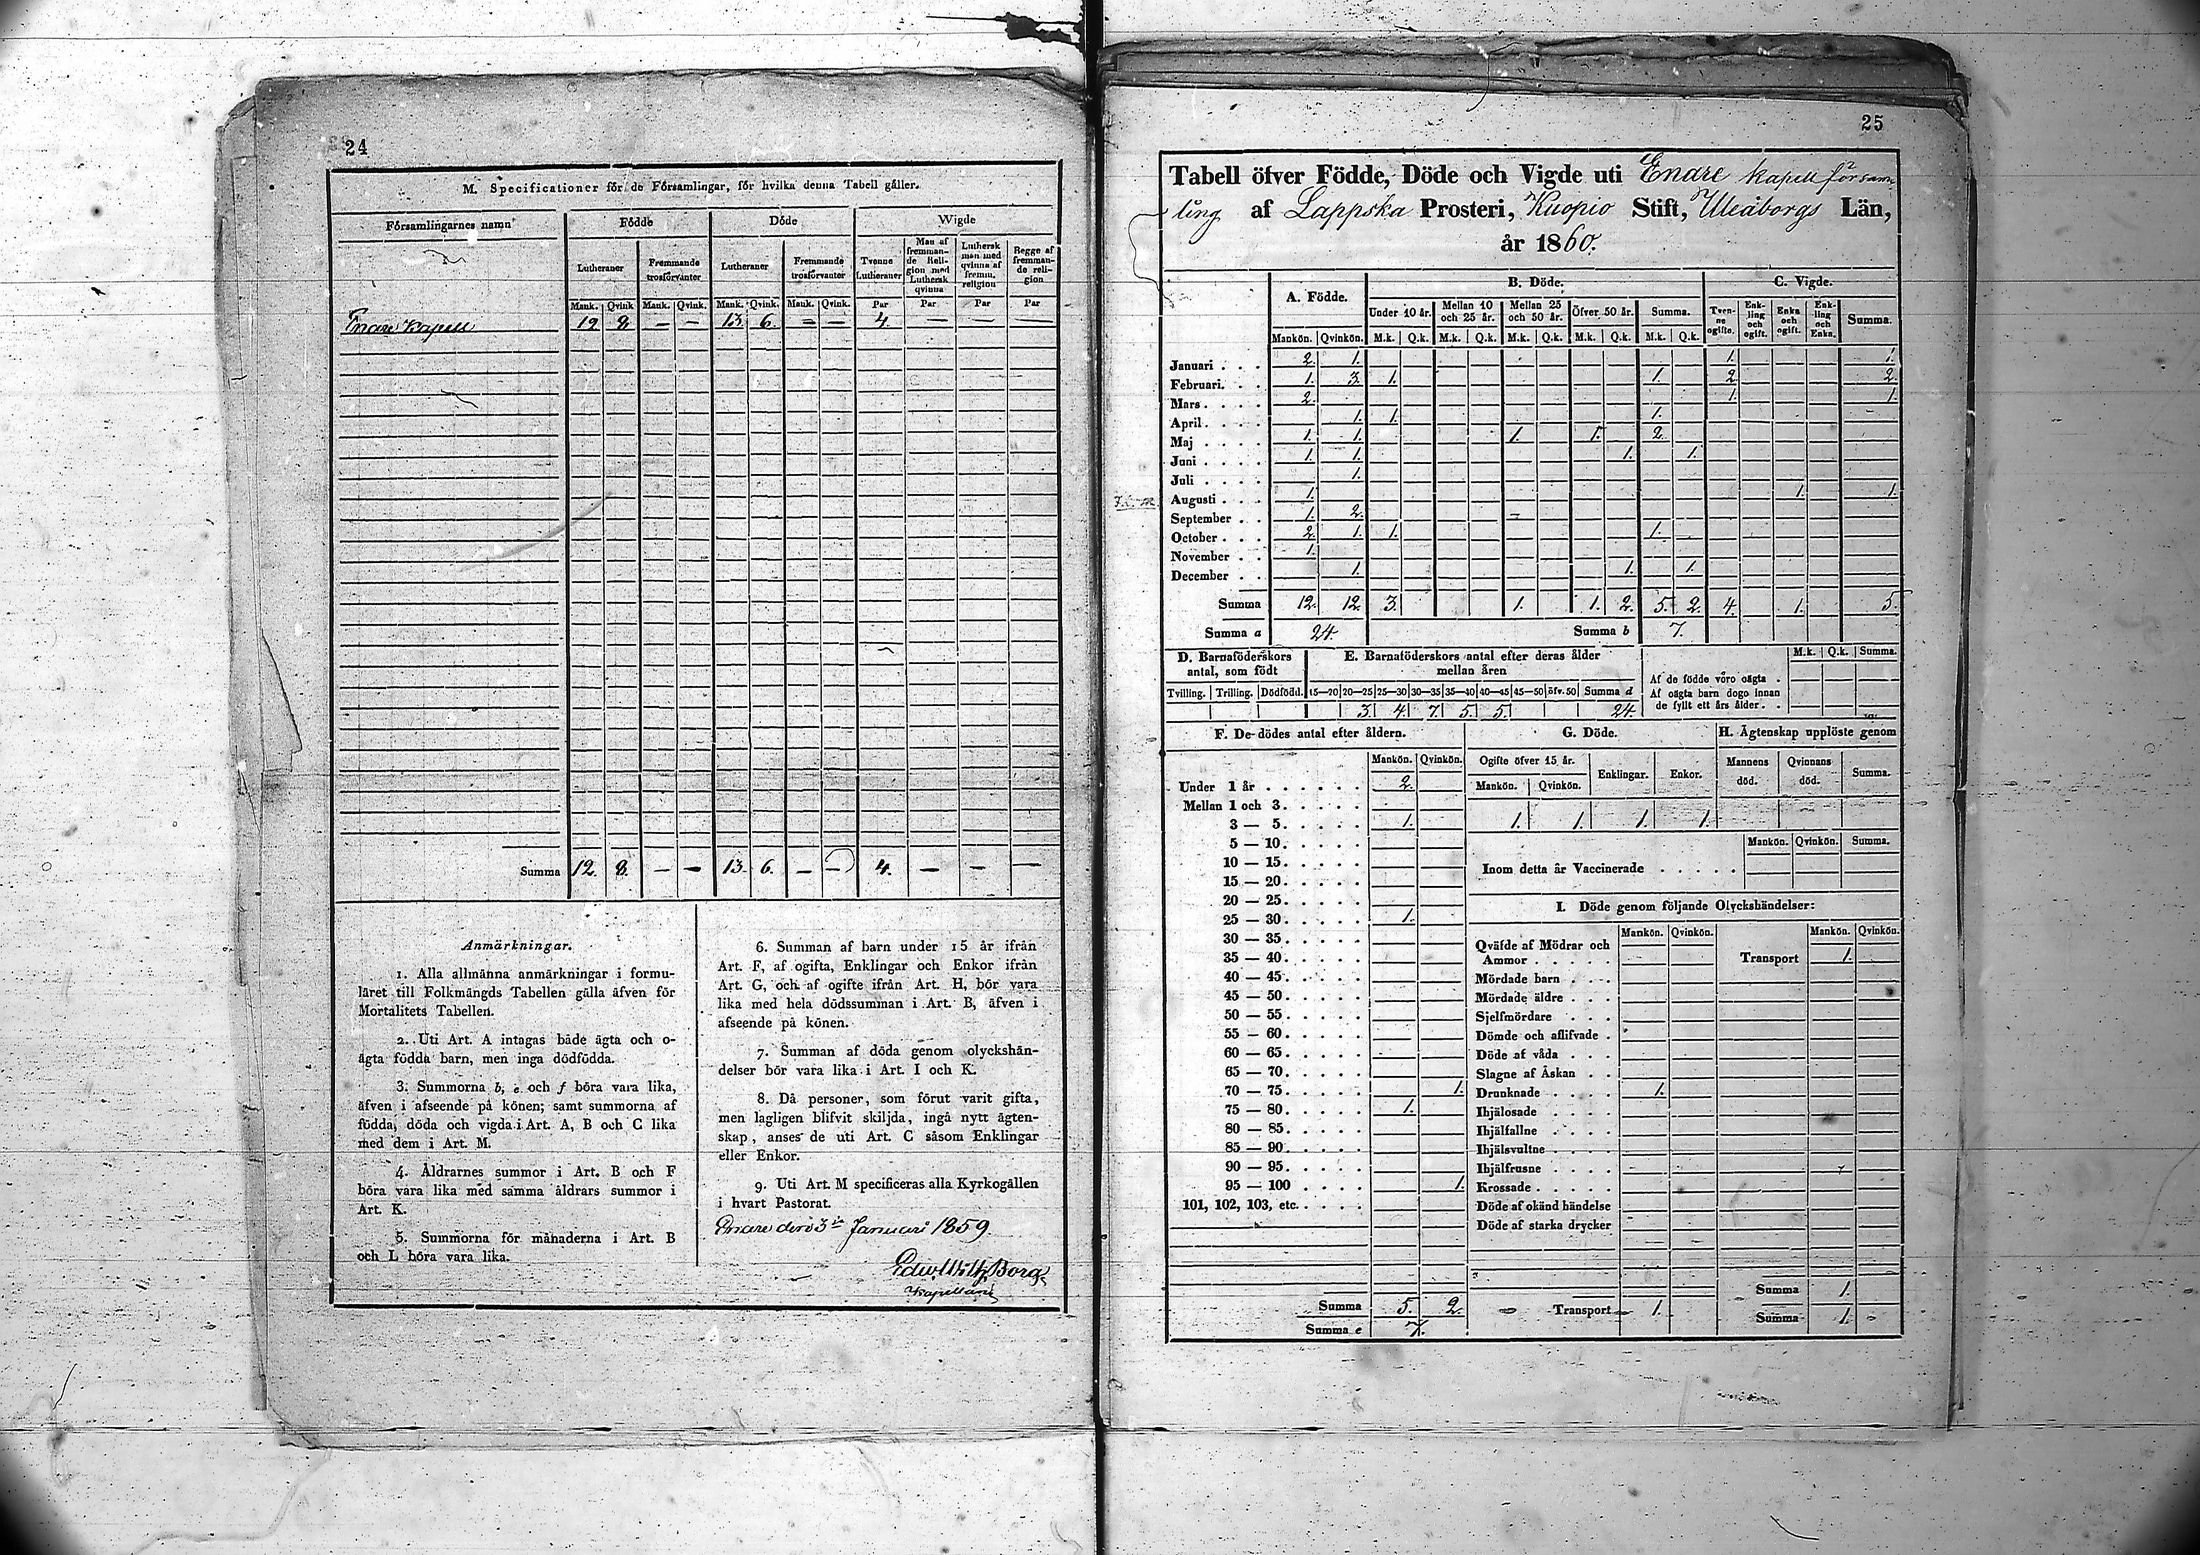 24
M. Specificationer för de Församlingar, för hvilka denna Tabell gäller.
Församlingarnes namn
Födde
Döde
Wigde
Lutheraner
Fremmande trosförvanter
Lutheraner
Fremmande trosförvanter
Tvenne Lutheraner
Man af fremmande Religion med Luthersk qvinna
Luthersk man med qvinna af fremm. religion
Begge af fremmande religion
Mank. Qvink Mank. Qvink. Mank. Qvink. Mank. Qvink. Par Par Par Par
Enare Kapell 12 8. — — 13. 6. — — 4. — — —
Summa 12. 8. — — 13. 6. — — 4. — — —
Anmärkningar.
1. Alla allmänna anmärkningar i formu-
läret till Folkmängds Tabellen gälla äfven för
Mortalitets Tabellen.
2. Uti Art. A intagas både ägta och o-
ägta födda barn, men inga dödfödda.
3. Summorna b, e och f böra vara lika,
äfven i afseende på könen; samt summorna af
födda, döda och vigda i Art. A, B och C lika
med dem i Art. M.
4. Åldrarnes summor i Art. B och F
böra vara lika med samma åldrars summor i
Art. K.
5. Summorna för månaderna i Art. B
och L böra vara lika.
6. Summan af barn under 15 år ifrån
Art. F, af ogifta, Enklingar och Enkor ifrån
Art. G, och af ogifte ifrån Art. H, bör vara
lika med hela dödssumman i Art. B, äfven i
afseende på könen.
7. Summan af döda genom olyckshän-
delser bör vara lika i Art. I och K.
8. Då personer, som förut varit gifta,
men lagligen blifvit skiljda, ingå nytt ägten-
skap, anses de uti Art. C såsom Enklingar
eller Enkor.
9. Uti Art. M specificeras alla Kyrkogällen
i hvart Pastorat.
Enare den 3 Januari 1859.
Edw. Wilh. Borg
Kapellan
25
Tabell öfver Födde, Döde och Vigde uti Enare kapell församling
af Lappska Prosteri, Kuopio Stift, Uleåborgs Län,
år 1860.
A. Födde.
B. Döde.
C. Vigde.
Under 10 år. Mellan 10 och 25 år. Mellan 25 och 50 år. Öfver 50 år. Summa.
Tvenne ogifte. Enkling och ogift. Enka och ogift. Enkling och Enka. Summa.
Mankön. Qvinkön. M.k. Q.k. M.k. Q.k. M.k. Q.k. M.k. Q.k. M.k. Q.k.
Januari . . . 2. 1. 1. 1.
Februari. . . 1. 3. 1. 1. 2. 2.
Mars . . . . 2. 1. 1.
April . . . . 1. 1. 1.
Maj . . . . 1. 1. 1. 1. 2.
Juni . . . . 1. 1. 1. 1.
Juli . . . . 1.
Augusti . . . 1. 1. 1.
September . . 1. 2.
October . . . 2. 1. 1. 1.
November . . 1.
December . . 1. 1. 1.
Summa 12. 12. 3. 1. 1. 2. 5. 2. 4. 1. 5.
Summa a 24. Summa b 7.
D. Barnaföderskors antal, som födt
Tvilling. Trilling. Dödfödd.
E. Barnaföderskors antal efter deras ålder mellan åren
15—20 20—25 25—30 30—35 35—40 40—45 45—50 öfv. 50 Summa d
3. 4. 7. 5. 5. 24.
M.k. Q.k. Summa.
Af de födde voro oägta .
Af oägta barn dogo innan
de fyllt ett års ålder . .
F. De dödes antal efter åldern.
Mankön. Qvinkön.
Under 1 år . . . . . . 2.
Mellan 1 och 3. . . . .
3 — 5. . . . . 1.
5 — 10. . . . .
10 — 15. . . . .
15 — 20. . . . .
20 — 25. . . . .
25 — 30. . . . . 1.
30 — 35. . . . .
35 — 40. . . . .
40 — 45. . . . .
45 — 50. . . . .
50 — 55. . . . .
55 — 60. . . . .
60 — 65. . . . .
65 — 70. . . . .
70 — 75. . . . . 1.
75 — 80. . . . . 1.
80 — 85. . . . .
85 — 90. . . . .
90 — 95. . . . .
95 — 100 . . . . 1.
101, 102, 103, etc. . . . .
Summa 5. 2.
Summa e 7.
G. Döde.
Ogifte öfver 15 år. Enklingar. Enkor.
Mankön. Qvinkön.
1. 1. 1. 1.
H. Ägtenskap upplöste genom
Mannens död. Qvinnans död. Summa.
Mankön. Qvinkön. Summa.
Inom detta år Vaccinerade . . . . .
I. Döde genom följande Olyckshändelser:
Mankön. Qvinkön. Mankön. Qvinkön.
Qväfde af Mödrar och
Ammor . . . . . Transport 1.
Mördade barn . . .
Mördade äldre . . .
Sjelfmördare . . .
Dömde och aflifvade .
Döde af våda . . .
Slagne af Åskan . .
Drunknade . . . . 1.
Ihjälosade . . . .
Ihjälfallne . . . .
Ihjälsvultne . . . .
Ihjälfrusne . . . .
Krossade . . . . .
Döde af okänd händelse
Döde af starka drycker
Summa 1.
Transport 1. Summa 1.